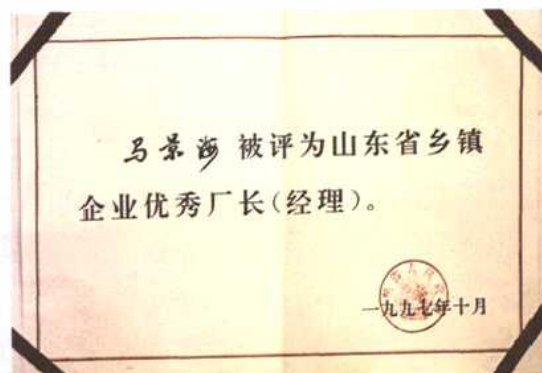 马景海 被评为山东省乡镇
企业优秀厂长(经理)。
一九九七年十月